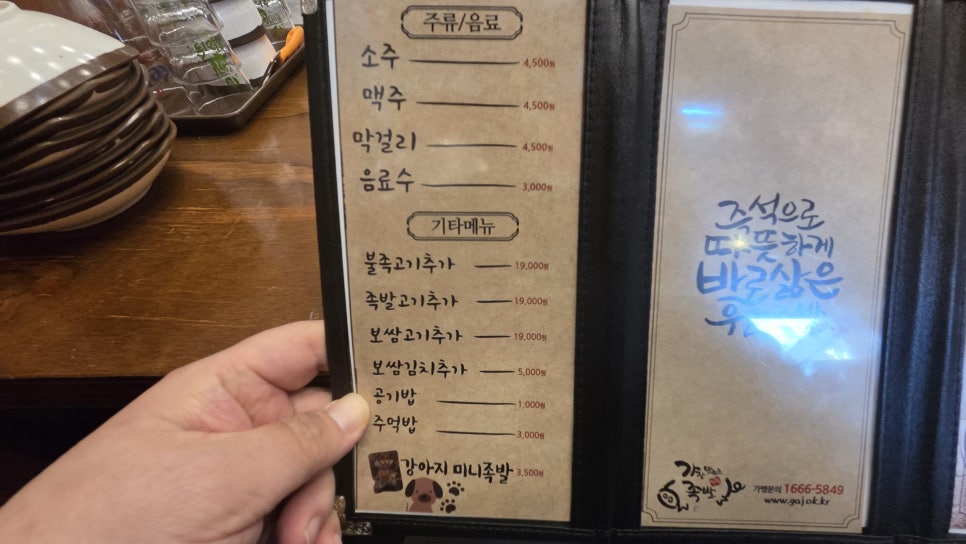 주류/음료
소주 4,500원
맥주 4,500원
막걸리 4,500원
음료수 3,000원
기타메뉴
불족고기추가 19,000원
족발고기추가 19,000원
보쌈고기추가 19,000원
보쌈김치추가 5,000원
공기밥 1,000원
주먹밥 3,000원
강아지 미니족발 3,500원
즉석으로
따뜻하게
바로삶은
족발
가맹문의 1666-5849
www.gajok.kr